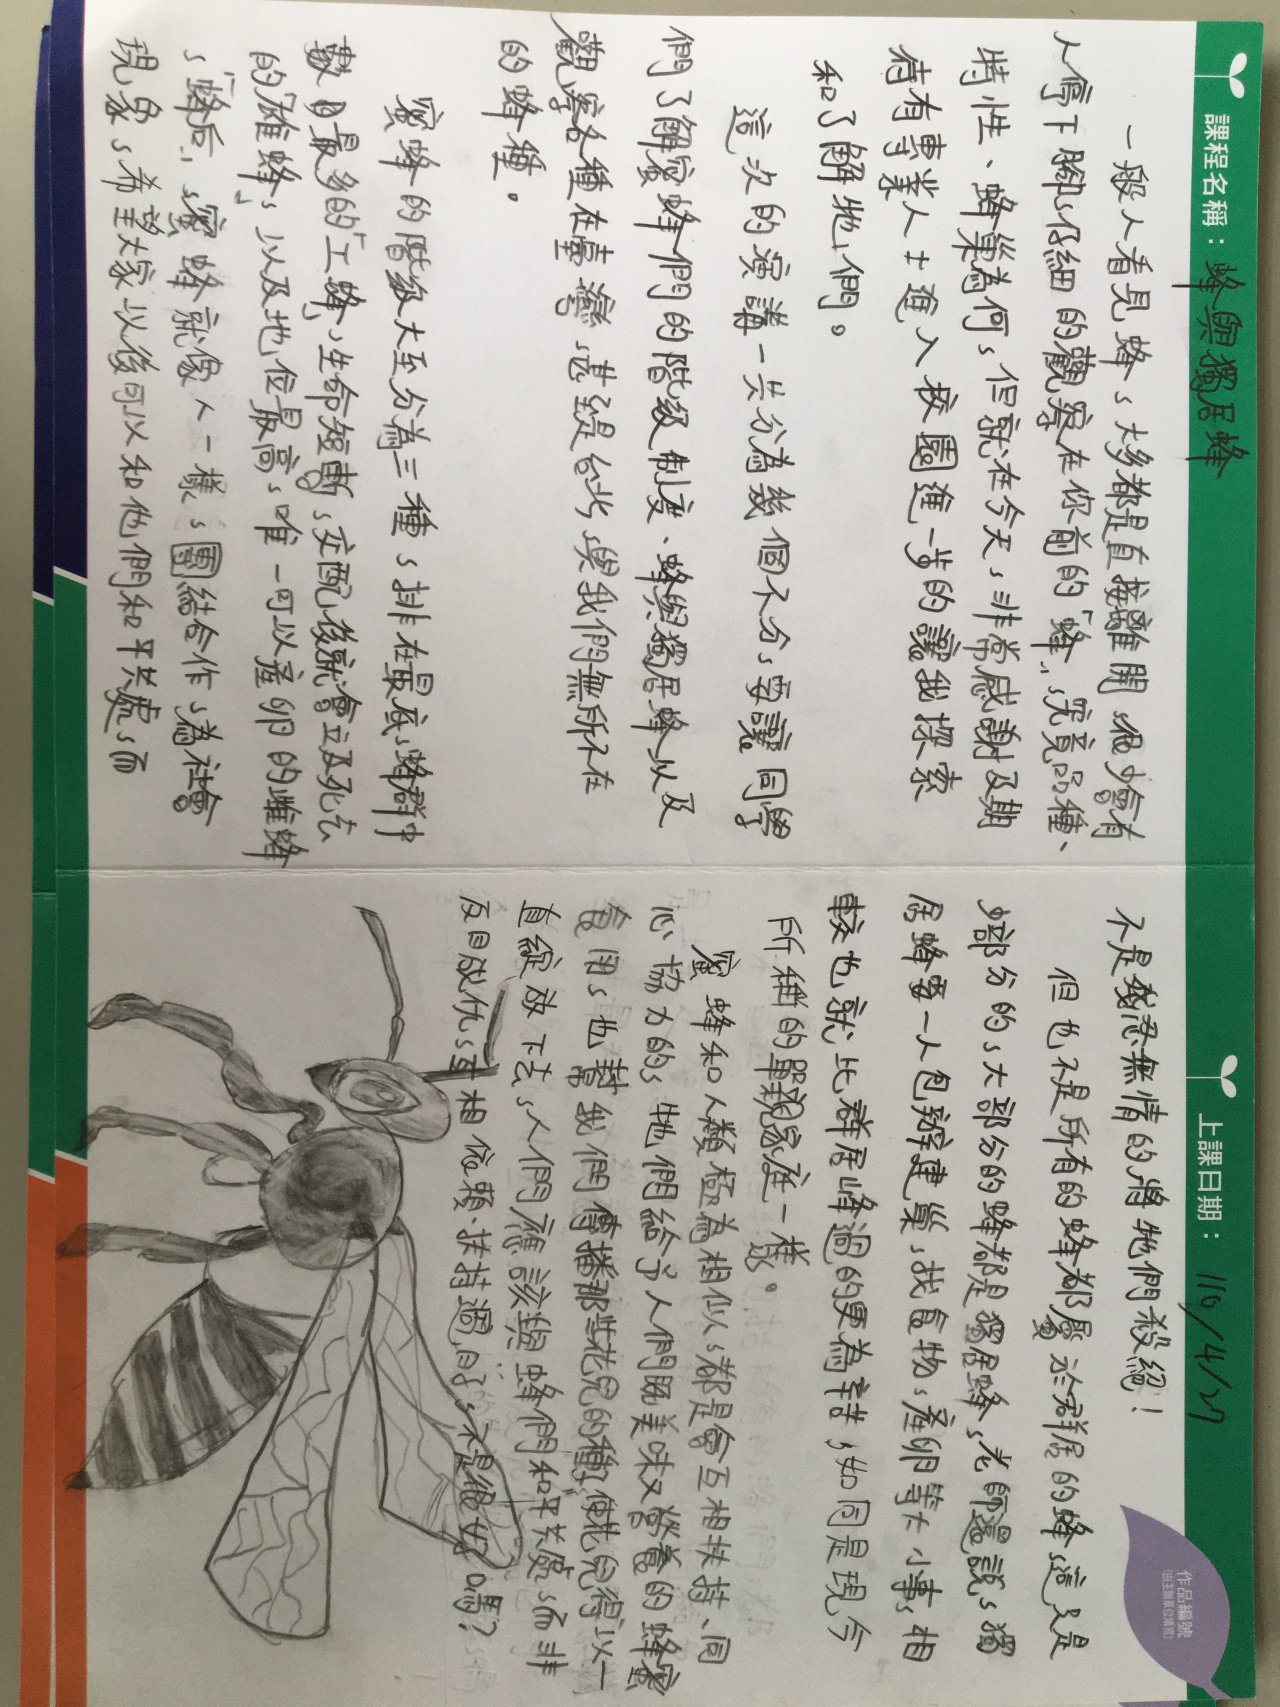 課程名稱：蜂與獨居蜂
一般人看見蜂，大多都是直接離開，很少會有
人停下腳，仔細的觀察在你前的「蜂」，究竟品種、
特性、蜂巢為何，但就在今天，非常感謝及期
待有專業人士進入校園進一步的讓我探索
和了解牠們。
這次的演講一共分為幾個不分，要讓同學
們了解蜜蜂們的階級制度、蜂與獨居蜂以及
觀察各種在臺灣，甚至是台北，與我們無所不在
的蜂種。
蜜蜂的階級大至分為三種，排在最底，蜂群中
數目最多的「工蜂」，生命短暫，交配後就會立及死去
的「雄蜂」，以及地位最高，唯一可以產卵的雌蜂
，「蜂后」，蜜蜂就像人一樣，團結合作，為社會
現象，希望大家以後可以和他們和平共處，而
上課日期：110/4/27
作品編號
(由主辦單位填寫)
不是殘忍無情的將牠們殺絕！
但也不是所有的蜂都屬於群居的蜂，這只是
少部分的，大部分的蜂都是獨居蜂，老師還說，獨
居蜂要一人包辦建巢，找食物，產卵等大小事，相
較也就比群居峰過的更為辛苦，如同是現今
所稱的單親家庭一樣。
蜜蜂和人類極為相似，都是會互相扶持、同
心協力的，牠們給予人們既美味又營養的蜂蜜
食用，也幫我們傳播那些花兒的種子，使花兒得以一
直綻放下去，人們應該與蜂們和平共處，而非
反目成仇，互相依賴、扶持過日子，不是很好嗎？